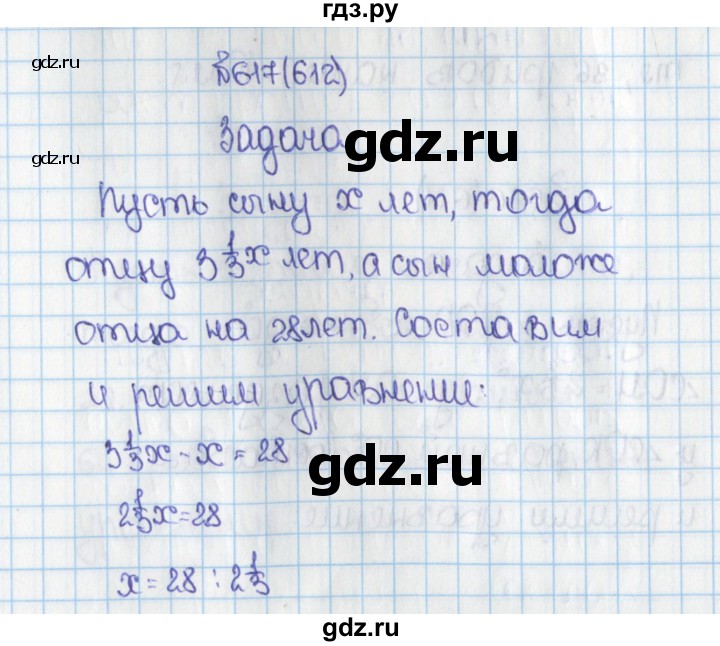 гдз.ру
gdz.ru
№617(612)
gdz.ru
Задача
gdz.ru
Пусть сыну x лет, тогда
отцу 3 1/3 x лет, а сын моложе
отца на 28 лет. Составим
и решим уравнение:
3 1/3 x - x = 28
gdz.ru
2 1/3 x = 28
x = 28 : 2 1/3
gdz.ru